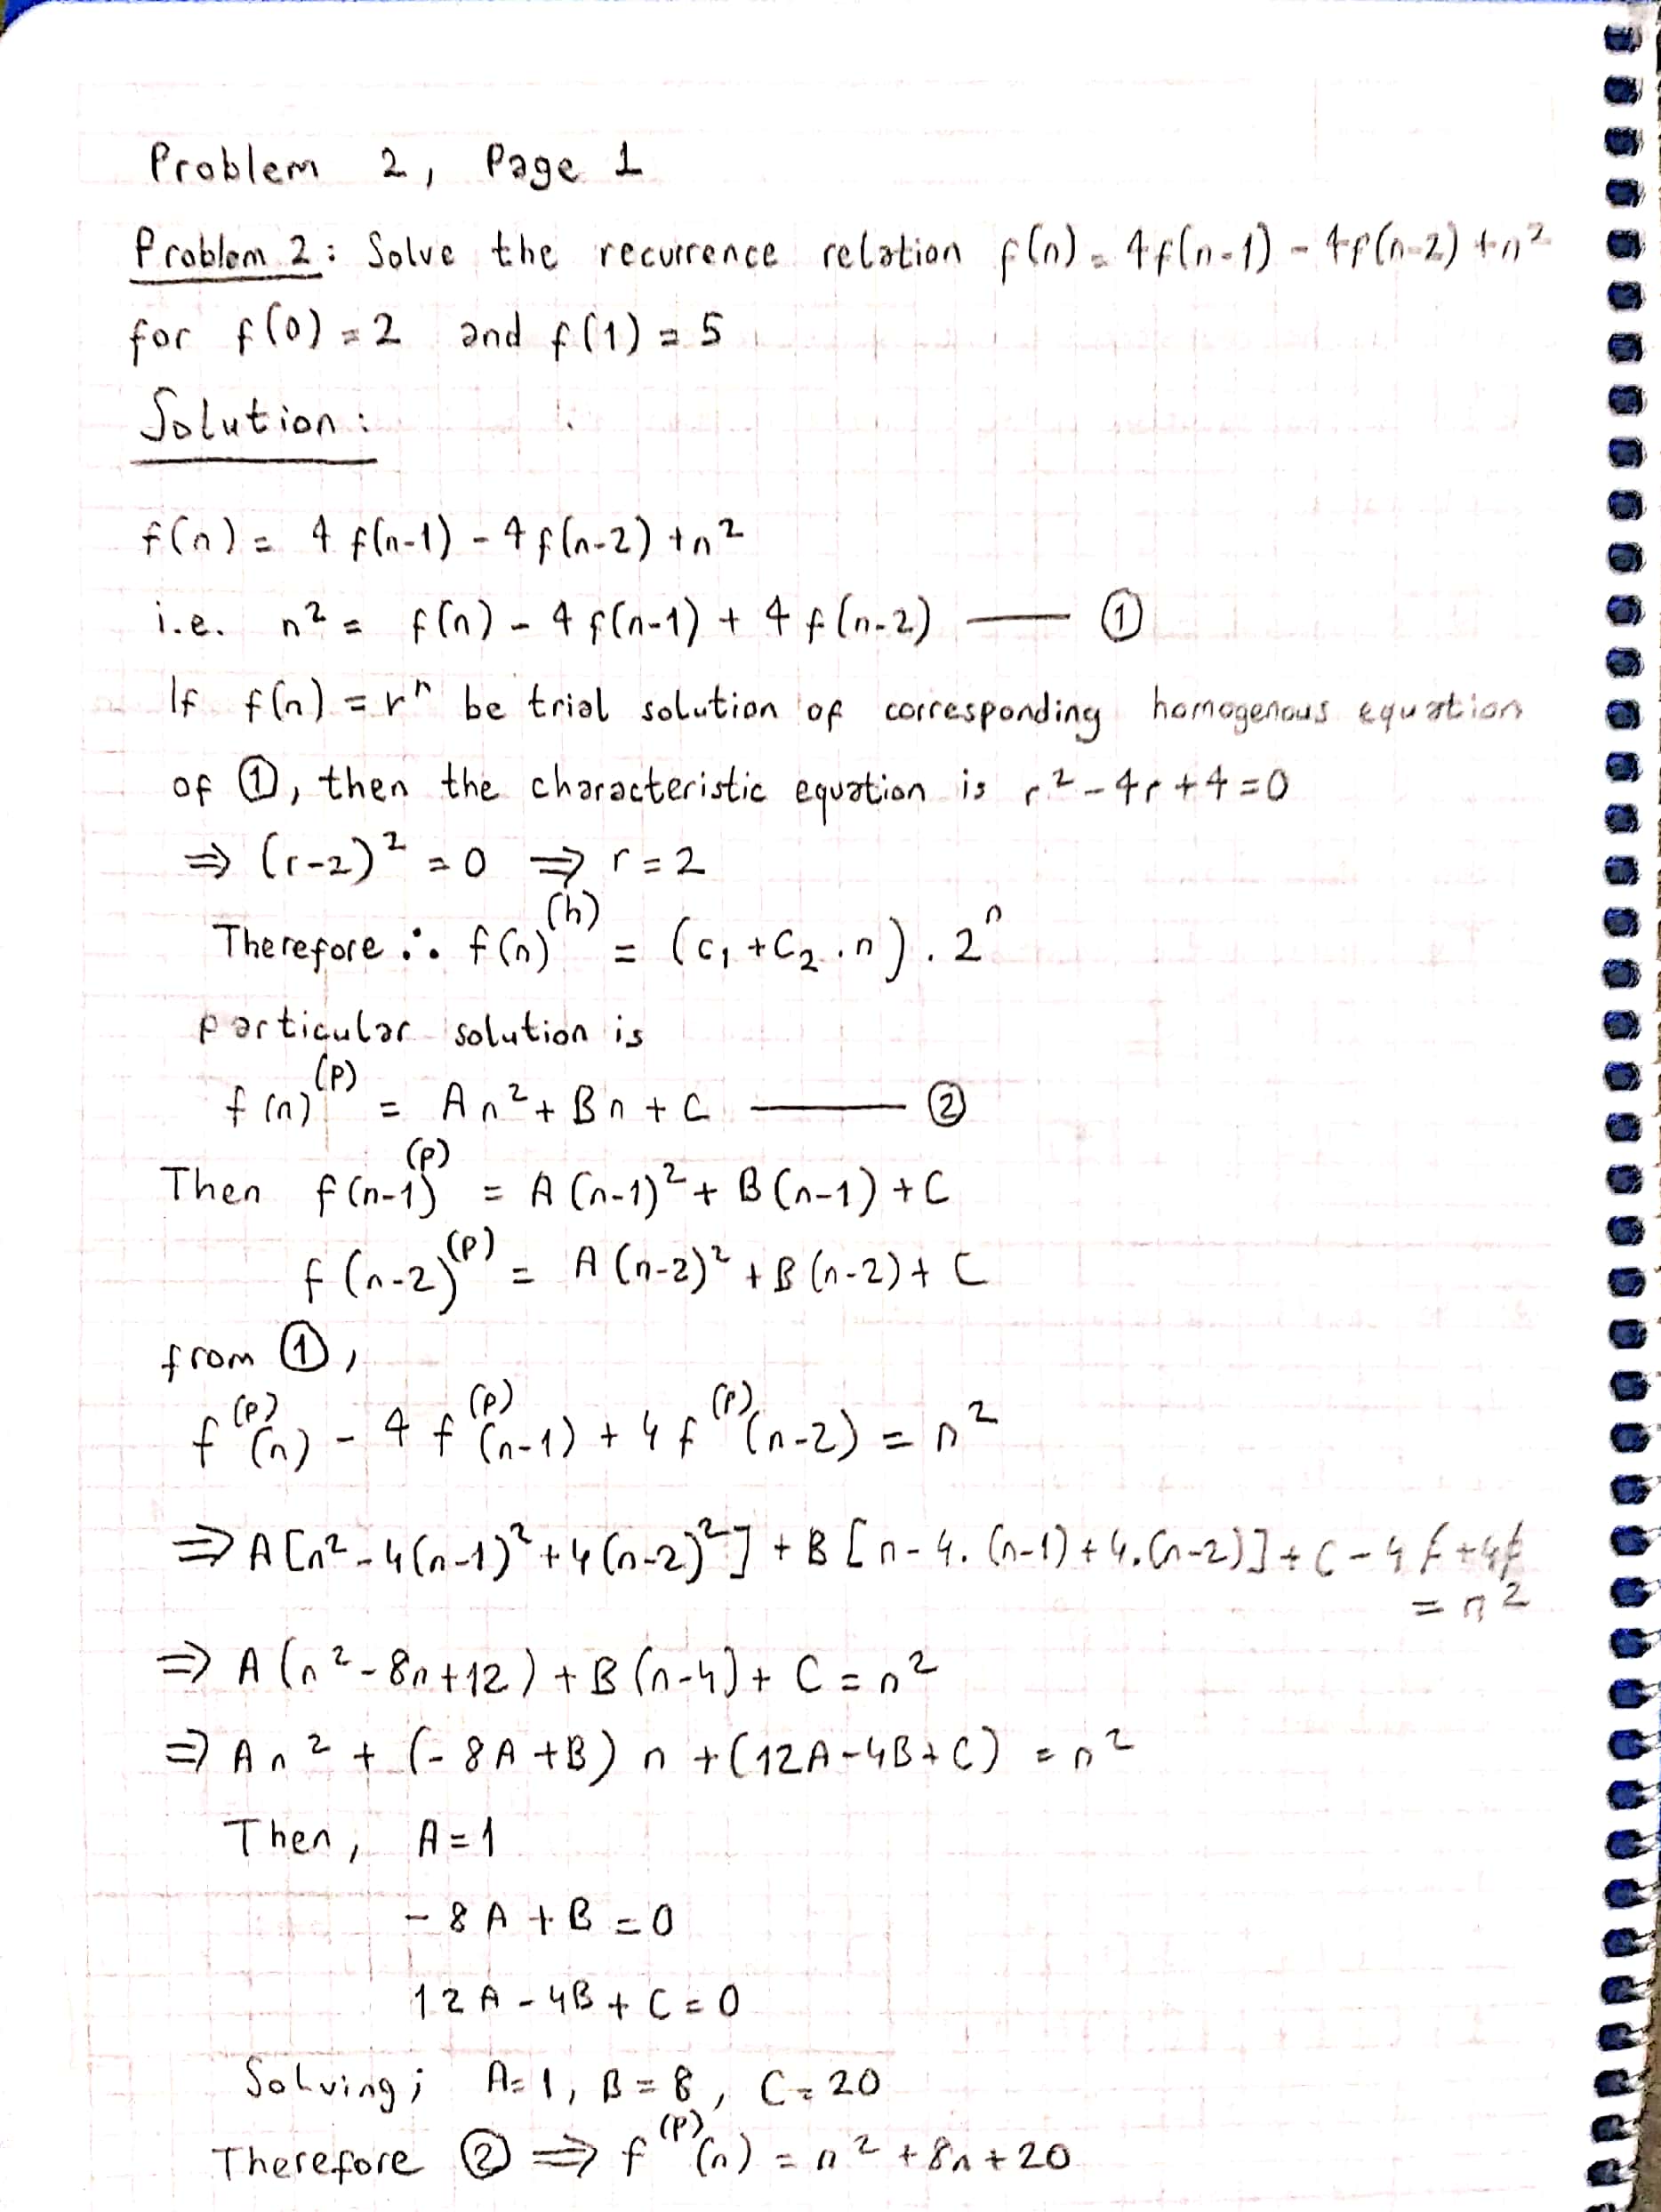 Problem 2, Page 1
Problem 2: Solve the recurrence relation f(n) = 4f(n-1) - 4f(n-2) + n²
for f(0) = 2 and f(1) = 5
Solution:
f(n) = 4 f(n-1) - 4 f(n-2) + n²
i.e. n² = f(n) - 4 f(n-1) + 4 f(n-2) —— ①
If f(n) = rⁿ be trial solution of corresponding homogenous equation
of ①, then the characteristic equation is r² - 4r + 4 = 0
⇒ (r-2)² = 0 ⇒ r = 2
Therefore ∴ f(n)^(h) = (c₁ + C₂ . n) . 2ⁿ
particular solution is
f(n)^(p) = An² + Bn + C —— ②
Then f(n-1)^(p) = A(n-1)² + B(n-1) + C
f(n-2)^(p) = A(n-2)² + B(n-2) + C
from ①,
f^(p)(n) - 4 f^(p)(n-1) + 4 f^(p)(n-2) = n²
⇒ A[n² - 4(n-1)² + 4(n-2)²] + B[n - 4.(n-1) + 4.(n-2)] + C - 4C + 4C
= n²
⇒ A(n² - 8n + 12) + B(n-4) + C = n²
⇒ An² + (-8A + B) n + (12A - 4B + C) = n²
Then, A = 1
-8A + B = 0
12A - 4B + C = 0
Solving; A = 1, B = 8, C = 20
Therefore ② ⇒ f^(p)(n) = n² + 8n + 20